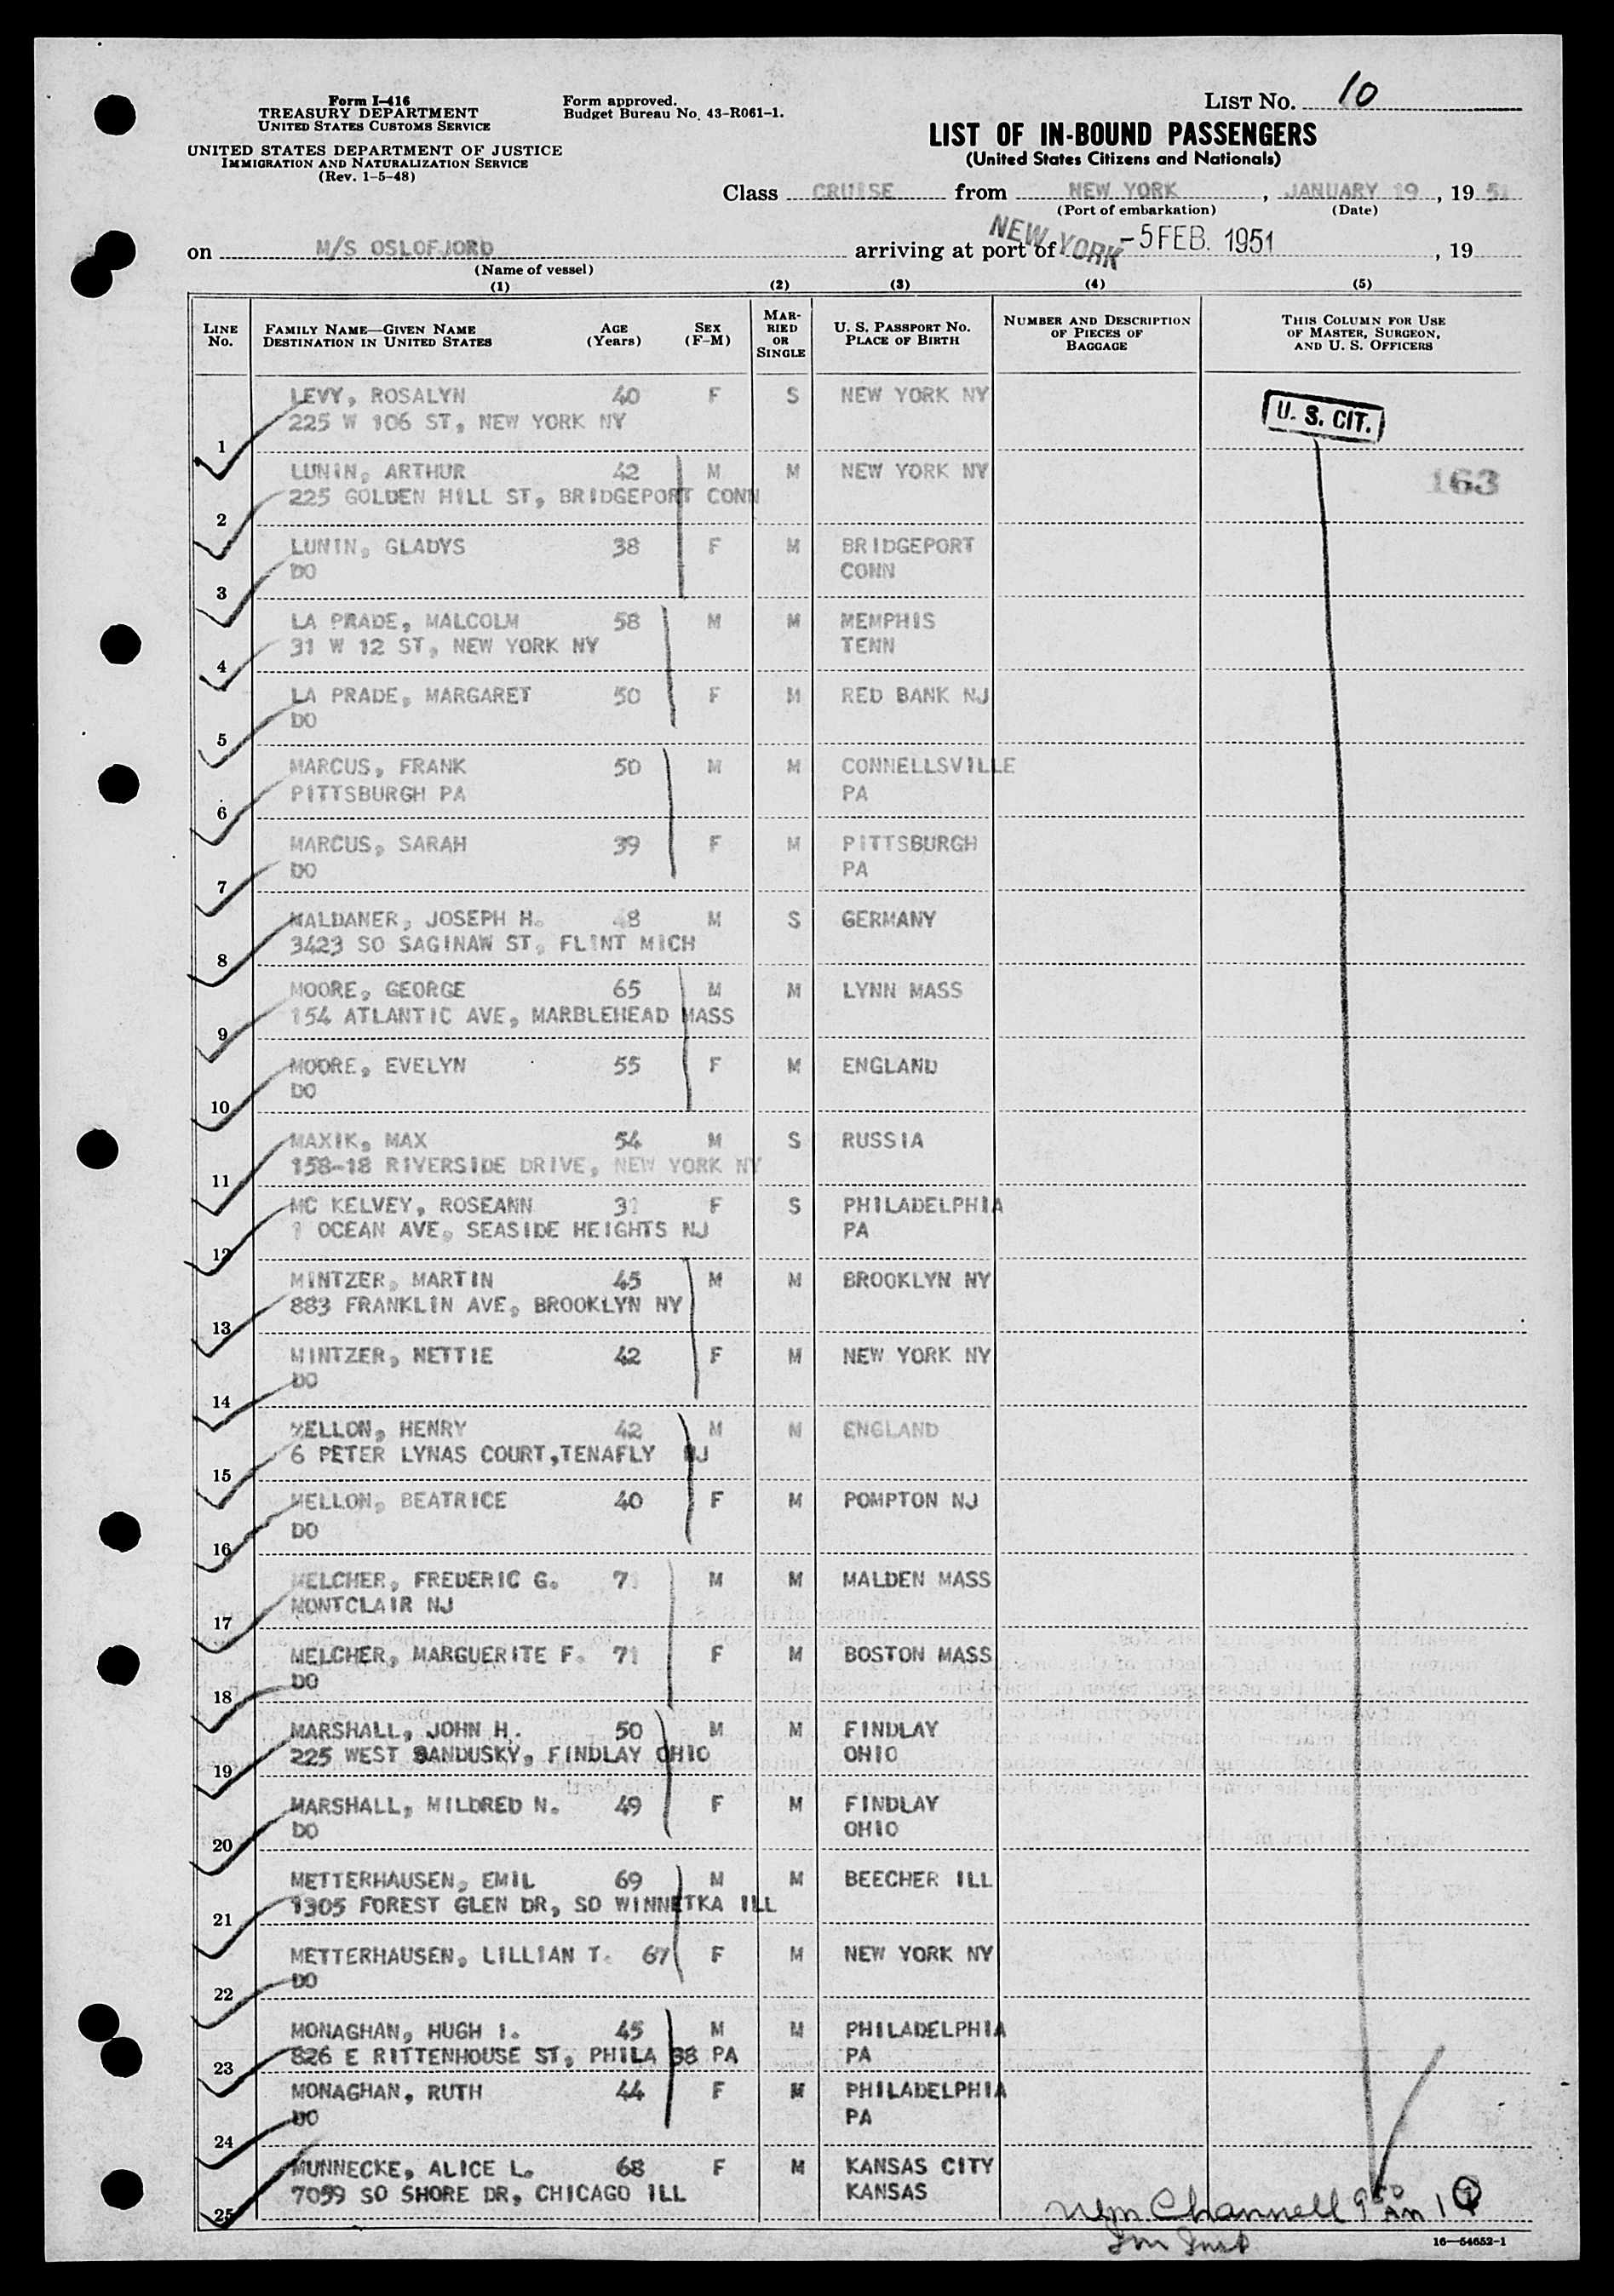 Form I-416
TREASURY DEPARTMENT
UNITED STATES CUSTOMS SERVICE
UNITED STATES DEPARTMENT OF JUSTICE
IMMIGRATION AND NATURALIZATION SERVICE
(Rev. 1-5-48)
Form approved.
Budget Bureau No. 43-R061-1.
LIST NO. 10
LIST OF IN-BOUND PASSENGERS
(United States Citizens and Nationals)
Class CRUISE from NEW YORK, JANUARY 19, 1951
(Port of embarkation) (Date)
on M/S OSLOFJORD arriving at port of NEW YORK -5 FEB. 1951, 19
(Name of vessel)
(1) (2) (3) (4) (5)
LINE No. FAMILY NAME—GIVEN NAME DESTINATION IN UNITED STATES AGE (Years) SEX (F-M) MARRIED OR SINGLE U. S. PASSPORT NO. PLACE OF BIRTH NUMBER AND DESCRIPTION OF PIECES OF BAGGAGE THIS COLUMN FOR USE OF MASTER, SURGEON, AND U. S. OFFICERS
LEVY, ROSALYN 40 F S NEW YORK NY
U. S. CIT.
225 W 106 ST, NEW YORK NY
1
LUNIN, ARTHUR 42 M M NEW YORK NY
163
225 GOLDEN HILL ST, BRIDGEPORT CONN
2
LUNIN, GLADYS 38 F M BRIDGEPORT
DO CONN
3
LA PRADE, MALCOLM 58 M M MEMPHIS
31 W 12 ST, NEW YORK NY TENN
4
LA PRADE, MARGARET 50 F M RED BANK NJ
DO
5
MARCUS, FRANK 50 M M CONNELLSVILLE
PITTSBURGH PA PA
6
MARCUS, SARAH 39 F M PITTSBURGH
DO PA
7
MALDANER, JOSEPH H. 48 M S GERMANY
3423 SO SAGINAW ST, FLINT MICH
8
MOORE, GEORGE 65 M M LYNN MASS
154 ATLANTIC AVE, MARBLEHEAD MASS
9
MOORE, EVELYN 55 F M ENGLAND
DO
10
MAXIK, MAX 54 M S RUSSIA
158-18 RIVERSIDE DRIVE, NEW YORK NY
11
MC KELVEY, ROSEANN 31 F S PHILADELPHIA
1 OCEAN AVE, SEASIDE HEIGHTS NJ PA
12
MINTZER, MARTIN 45 M M BROOKLYN NY
883 FRANKLIN AVE, BROOKLYN NY
13
MINTZER, NETTIE 42 F M NEW YORK NY
DO
14
MELLON, HENRY 42 M M ENGLAND
6 PETER LYNAS COURT,TENAFLY NJ
15
MELLON, BEATRICE 40 F M POMPTON NJ
DO
16
MELCHER, FREDERIC G. 71 M M MALDEN MASS
MONTCLAIR NJ
17
MELCHER, MARGUERITE F. 71 F M BOSTON MASS
DO
18
MARSHALL, JOHN H. 50 M M FINDLAY
225 WEST SANDUSKY, FINDLAY OHIO OHIO
19
MARSHALL, MILDRED N. 49 F M FINDLAY
DO OHIO
20
METTERHAUSEN, EMIL 69 M M BEECHER ILL
1305 FOREST GLEN DR, SO WINNETKA ILL
21
METTERHAUSEN, LILLIAN T. 67 F M NEW YORK NY
DO
22
MONAGHAN, HUGH I. 45 M M PHILADELPHIA
826 E RITTENHOUSE ST, PHILA 38 PA PA
23
MONAGHAN, RUTH 44 F M PHILADELPHIA
DO PA
24
MUNNECKE, ALICE L. 68 F M KANSAS CITY
7059 SO SHORE DR, CHICAGO ILL KANSAS
25
Wm Channell 9
Im Insp
16—54652-1